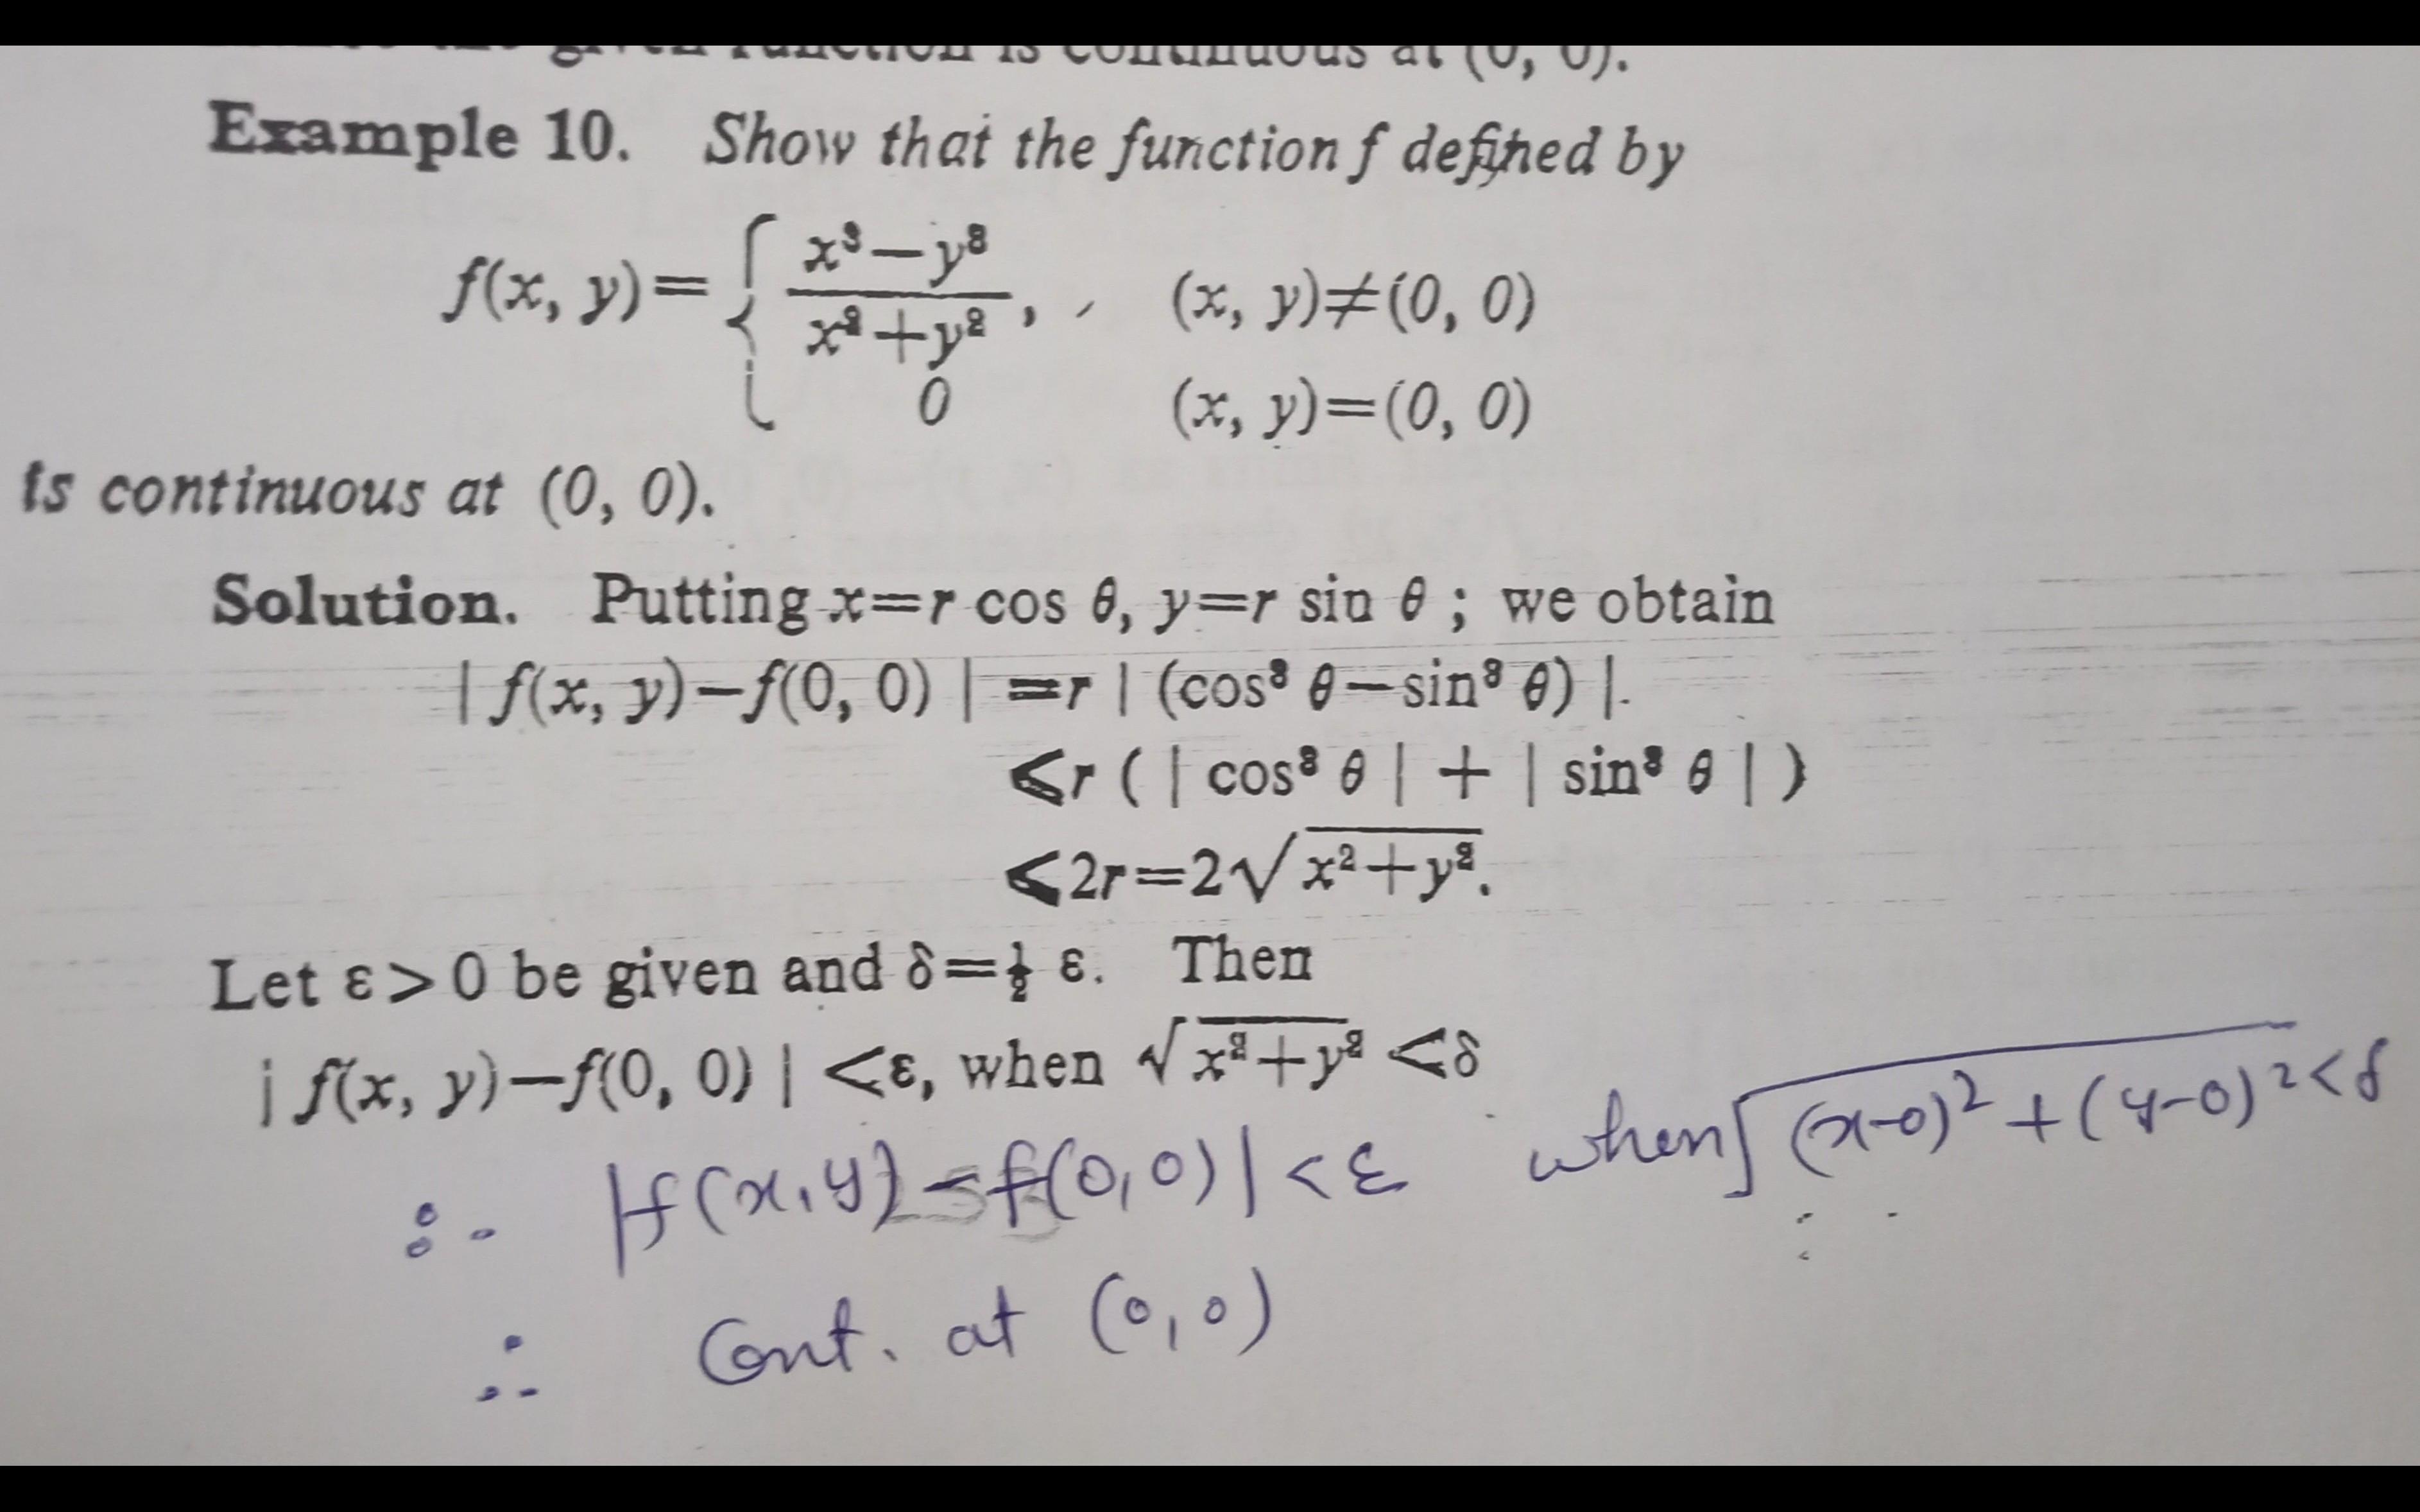 given function is continuous at (0, 0).
Example 10. Show that the function f defined by
f(x, y)= { x³−y³ / x²+y² , (x, y)≠(0, 0)
0 (x, y)=(0, 0)
is continuous at (0, 0).
Solution. Putting x=r cos θ, y=r sin θ ; we obtain
| f(x, y)−f(0, 0) | =r | (cos³ θ−sin³ θ) |.
⩽r ( | cos³ θ | + | sin³ θ | )
⩽2r=2√x²+y².
Let ε>0 be given and δ=½ ε. Then
| f(x, y)−f(0, 0) | <ε, when √x²+y² <δ
∴ |f(x,y)−f(0,0)| <ε when √(x-0)²+(y-0)² <δ
∴ Cont. at (0,0)